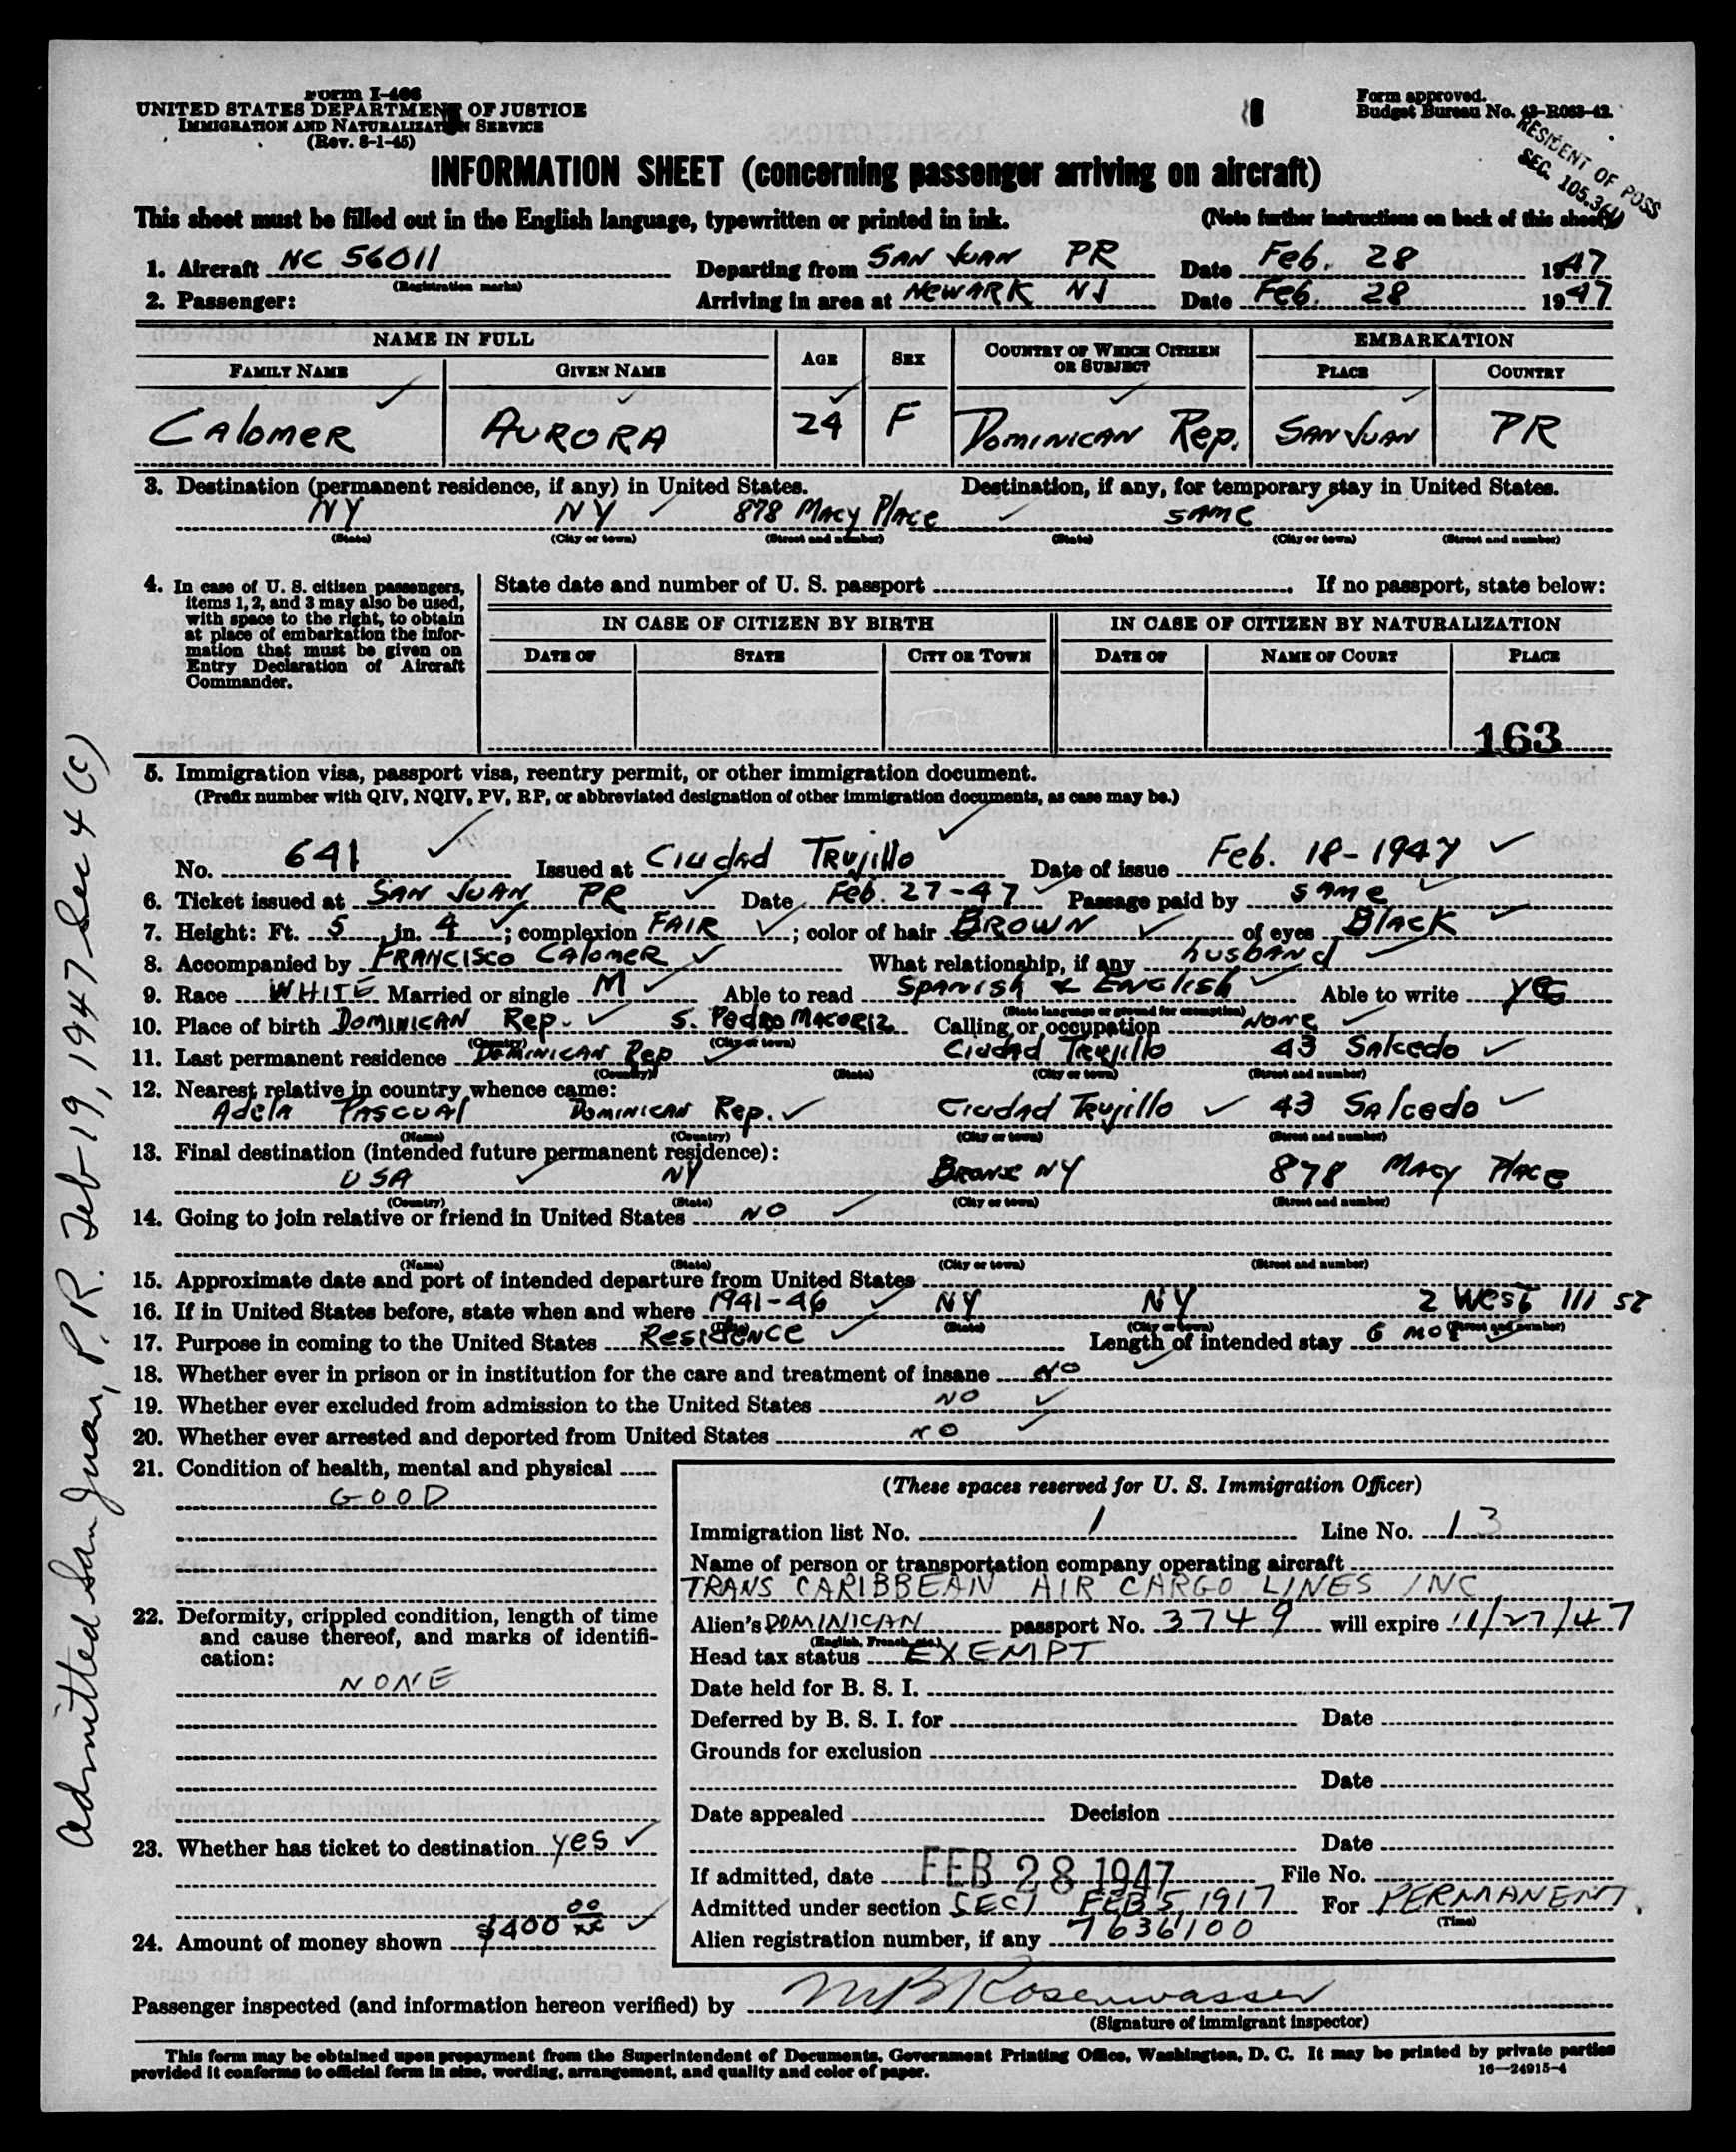 Form I-466
UNITED STATES DEPARTMENT OF JUSTICE
IMMIGRATION AND NATURALIZATION SERVICE
(Rev. 8-1-45)
Form approved.
Budget Bureau No. 43-R063-42.
RESIDENT OF POSS
SEC. 105.3(1)
INFORMATION SHEET (concerning passenger arriving on aircraft)
This sheet must be filled out in the English language, typewritten or printed in ink. (Note further instructions on back of this sheet)
1. Aircraft NC 56011 Departing from SAN JUAN PR Date Feb. 28 1947
(Registration marks)
2. Passenger: Arriving in area at NEWARK NJ Date Feb. 28 1947
NAME IN FULL AGE SEX COUNTRY OF WHICH CITIZEN OR SUBJECT EMBARKATION
FAMILY NAME GIVEN NAME PLACE COUNTRY
CALOMER AURORA 24 F DOMINICAN Rep. SAN JUAN PR
3. Destination (permanent residence, if any) in United States. Destination, if any, for temporary stay in United States.
NY NY 878 MACY Place same
(State) (City or town) (Street and number) (State) (City or town) (Street and number)
4. In case of U. S. citizen passengers, items 1, 2, and 3 may also be used, with space to the right, to obtain at place of embarkation the information that must be given on Entry Declaration of Aircraft Commander.
State date and number of U. S. passport If no passport, state below:
IN CASE OF CITIZEN BY BIRTH IN CASE OF CITIZEN BY NATURALIZATION
DATE OF STATE CITY OR TOWN DATE OF NAME OF COURT PLACE
163
5. Immigration visa, passport visa, reentry permit, or other immigration document.
(Prefix number with QIV, NQIV, PV, RP, or abbreviated designation of other immigration documents, as case may be.)
No. 641 Issued at Ciudad Trujillo Date of issue Feb. 18-1947
6. Ticket issued at SAN JUAN PR Date Feb. 27-47 Passage paid by same
7. Height: Ft. 5, in. 4; complexion FAIR; color of hair BROWN of eyes Black
8. Accompanied by FRANCISCO CALOMER What relationship, if any husband
9. Race WHITE Married or single M Able to read Spanish & English Able to write yes
(State language or ground for exemption)
10. Place of birth DOMINICAN Rep. S. Pedro Macoriz Calling or occupation none
(Country) (City or town)
11. Last permanent residence DOMINICAN Rep Ciudad Trujillo 43 Salcedo
(Country) (State) (City or town) (Street and number)
12. Nearest relative in country whence came:
Adela PASCUAL DOMINICAN Rep. Ciudad Trujillo 43 Salcedo
(Name) (Country) (City or town) (Street and number)
13. Final destination (intended future permanent residence):
USA NY Bronx NY 878 MACY Place
(Country) (State) (City or town) (Street and number)
14. Going to join relative or friend in United States NO
(Name) (State) (City or town) (Street and number)
15. Approximate date and port of intended departure from United States
16. If in United States before, state when and where 1941-46 NY NY 2 West 111 st
(State) (City or town) (Street and number)
17. Purpose in coming to the United States Residence Length of intended stay 6 mos
18. Whether ever in prison or in institution for the care and treatment of insane NO
19. Whether ever excluded from admission to the United States NO
20. Whether ever arrested and deported from United States NO
21. Condition of health, mental and physical
GOOD
22. Deformity, crippled condition, length of time and cause thereof, and marks of identification:
NONE
23. Whether has ticket to destination yes
24. Amount of money shown $400 00
(These spaces reserved for U. S. Immigration Officer)
Immigration list No. 1 Line No. 13
Name of person or transportation company operating aircraft
TRANS CARIBBEAN AIR CARGO LINES INC
Alien's DOMINICAN passport No. 3749 will expire 11/27/47
(English, French, etc.)
Head tax status EXEMPT
Date held for B. S. I.
Deferred by B. S. I. for Date
Grounds for exclusion
Date
Date appealed Decision
Date
If admitted, date FEB 28 1947 File No.
Admitted under section SEC 1 FEB 5, 1917 For PERMANENT.
(Time)
Alien registration number, if any 7636100
Passenger inspected (and information hereon verified) by M B Rosenwasser
(Signature of immigrant inspector)
This form may be obtained upon prepayment from the Superintendent of Documents, Government Printing Office, Washington, D. C. It may be printed by private parties
provided it conforms to official form in size, wording, arrangement, and quality and color of paper.
16—24915-4
Admitted San Juan, P.R. Feb-19, 1947 Sec 4 (c)